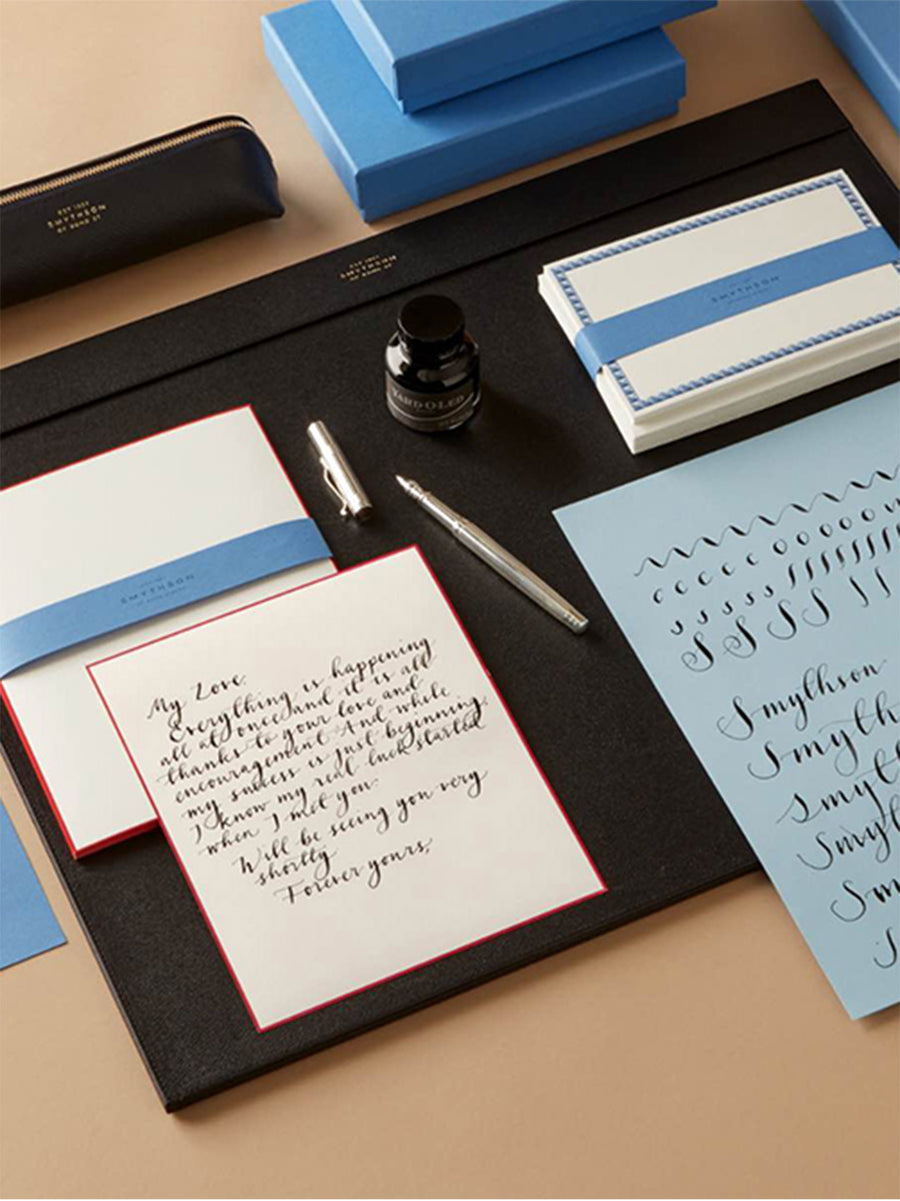 EST 1887
SMYTHSON
OF BOND ST
SMYTHSON
OF BOND ST
YARD O LED
SMYTHSON
SMYTHSON
My Love,
Everything is happening
all at once and it is all
thanks to your love and
encouragement. And while
my success is just beginning,
I know my real luck started
when I met you.
Will be seeing you very
shortly
Forever yours,
c c c c c o o o o o
s s s s s
S S S S
Smythson
Smyth
Smyth
Smyth
Sm
S